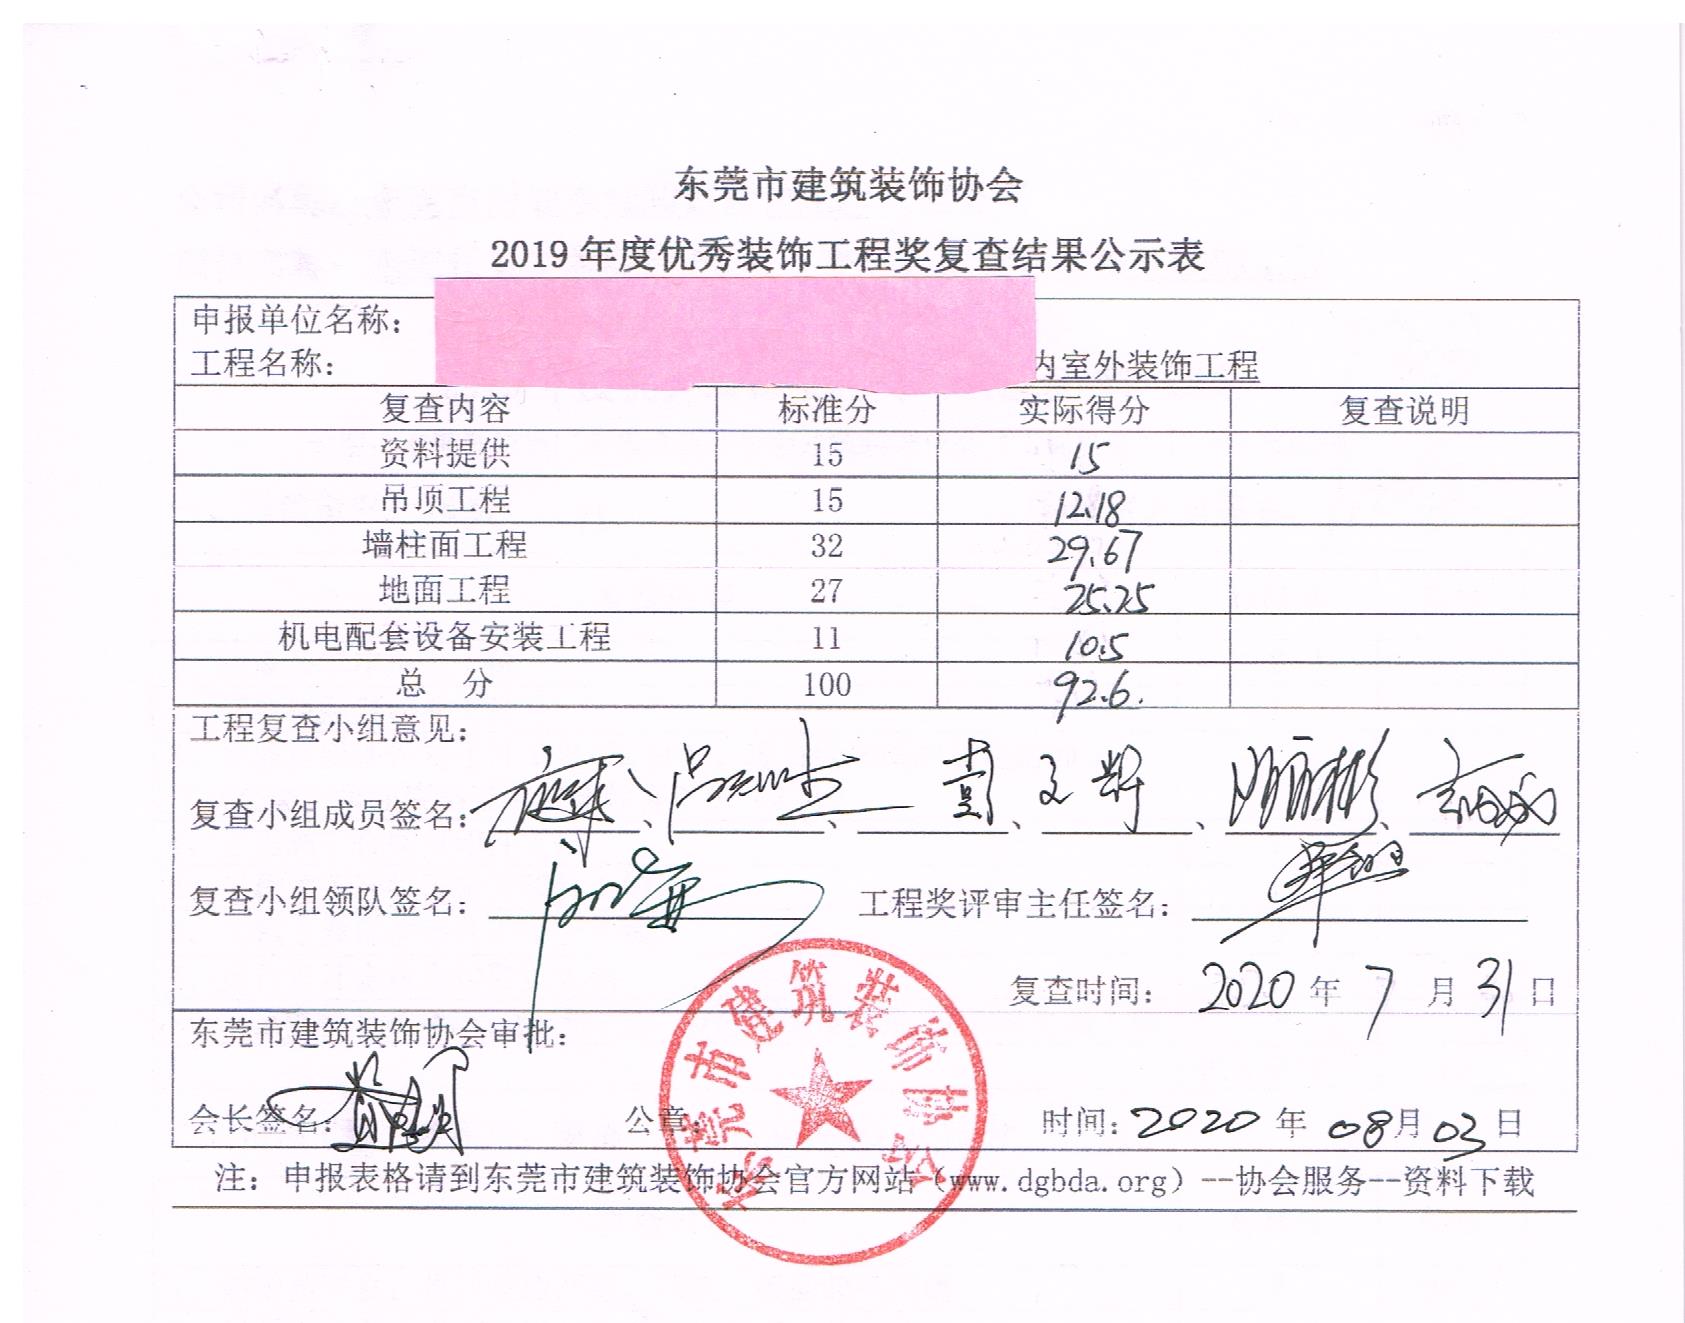 东莞市建筑装饰协会
2019 年度优秀装饰工程奖复查结果公示表
申报单位名称：
工程名称： 内室外装饰工程
复查内容 标准分 实际得分 复查说明
资料提供 15 15
吊顶工程 15 12.18
墙柱面工程 32 29.67
地面工程 27 25.25
机电配套设备安装工程 11 10.5
总 分 100 92.6.
工程复查小组意见：
复查小组成员签名： 、 、 、 、 、
复查小组领队签名： 工程奖评审主任签名：
复查时间： 2020 年 7 月 31 日
东莞市建筑装饰协会审批：
会长签名： 公章： 时间：2020 年 08月 03 日
东莞市建筑装饰协会
注：申报表格请到东莞市建筑装饰协会官方网站（www.dgbda.org）--协会服务--资料下载